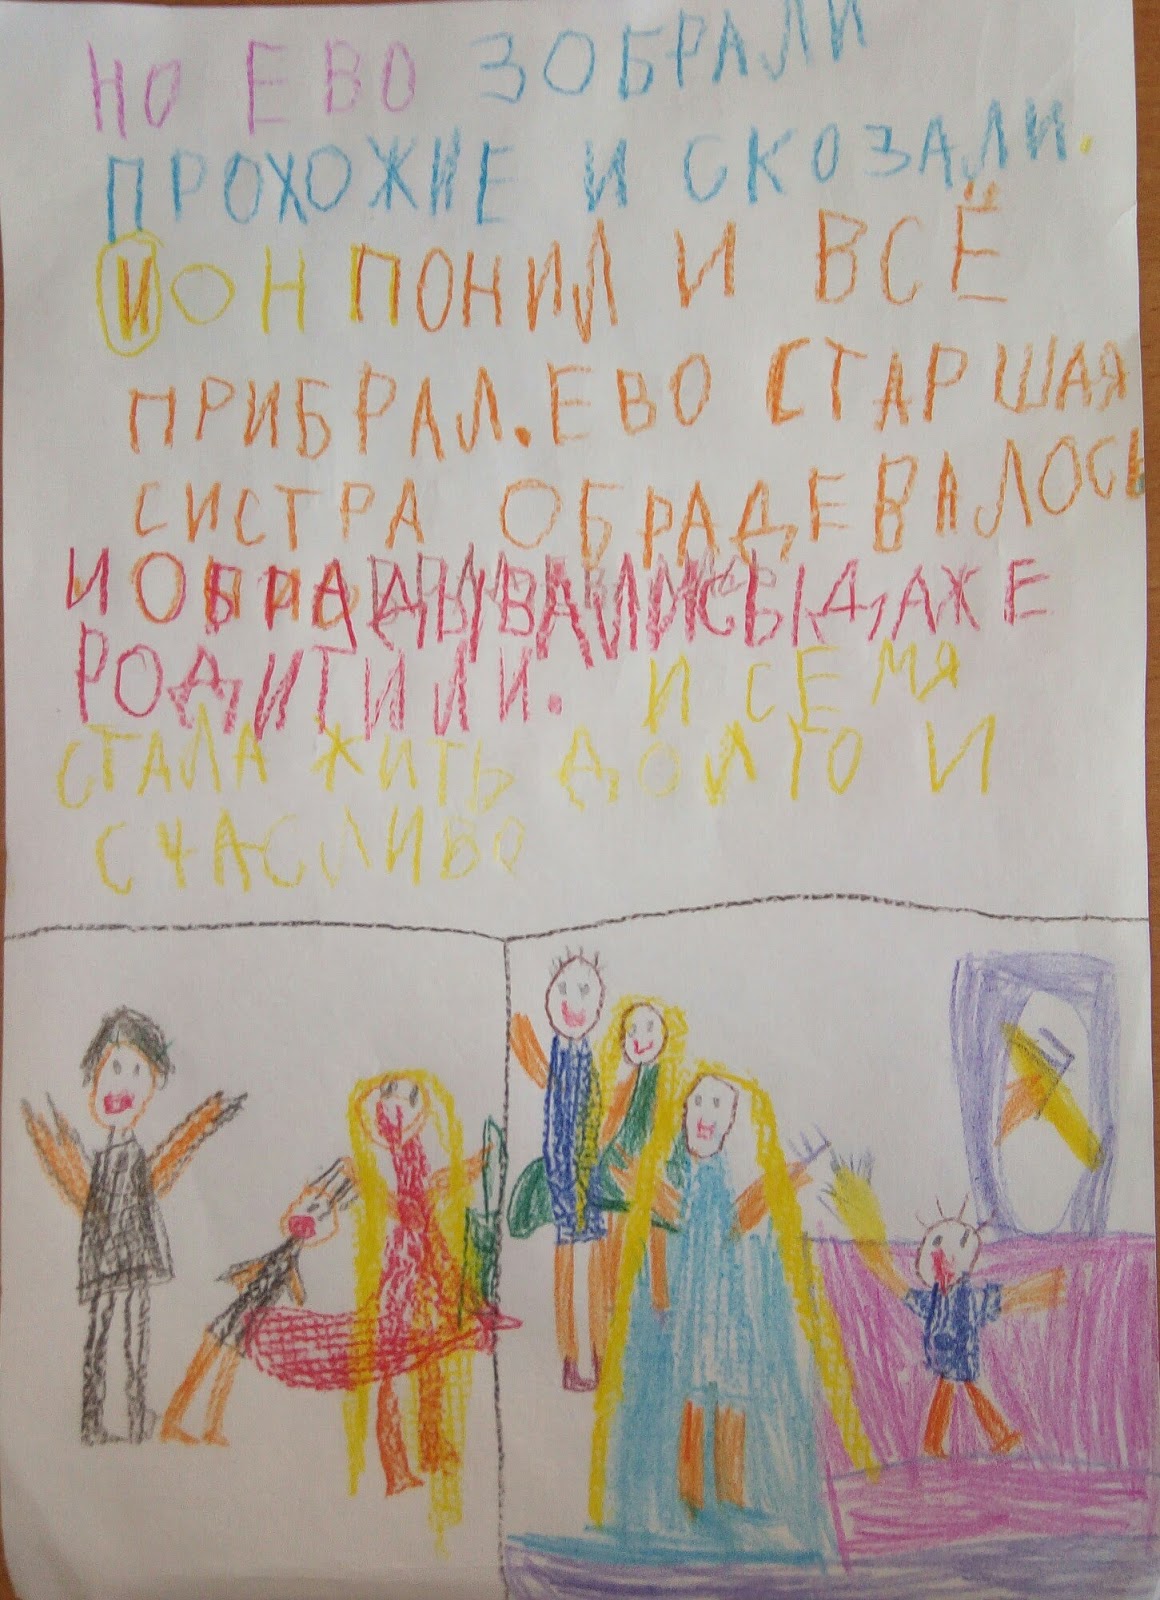 НО ЕВО ЗОБРАЛИ
ПРОХОЖИЕ И СКОЗАЛИ.
И ОН ПОНИЛ И ВСЁ
ПРИБРАЛ. ЕВО СТАРШАЯ
СИСТРА ОБРАДЕВАЛОСЬ
И ОБРАДЫВАЛИСЬ ДАЖЕ
РОДИТИЛИ. И СЕМЯ
СТАЛА ЖИТЬ ДОЛГО И
СЧАСЛИВО